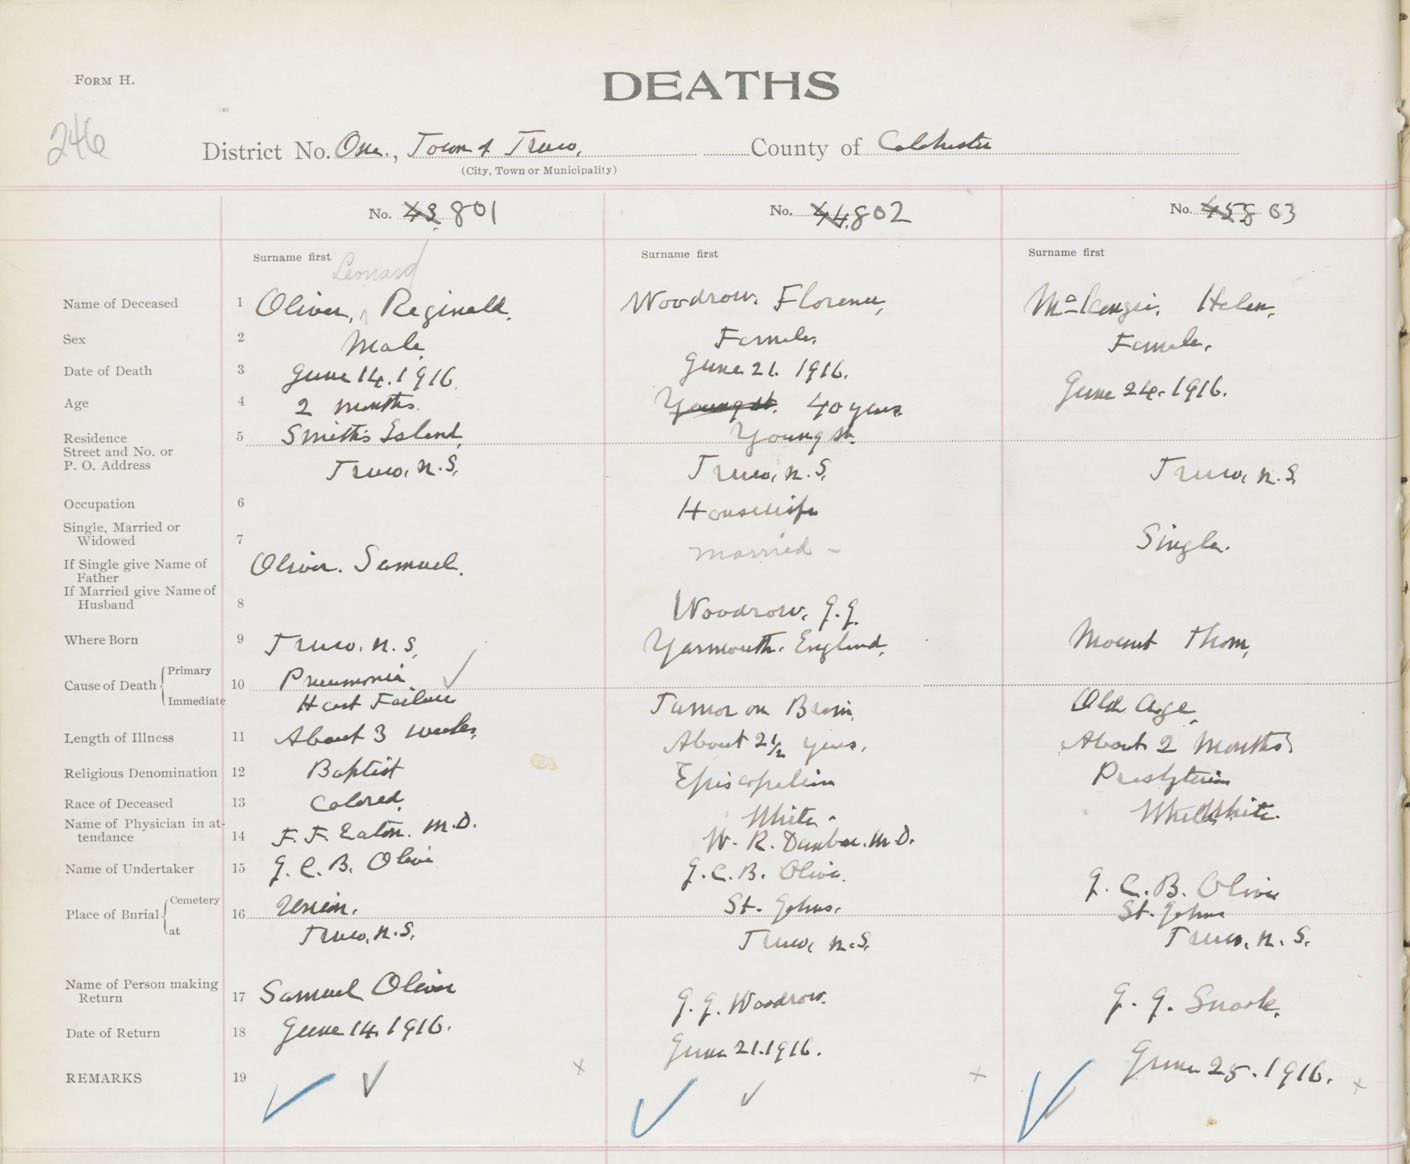 FORM H.
DEATHS
246
District No. One., Town of Truro, County of Colchester
(City, Town or Municipality)
No. 43 801
No. 44 802
No. 45 803
Surname first
Surname first
Surname first
Leonard
Name of Deceased 1 Oliver, Reginald. Woodrow. Florence, McKenzie. Helen.
Sex 2 Male Female. Female.
Date of Death 3 June 14. 1916. June 21. 1916. June 24. 1916.
Age 4 2 months. Young St. 40 years.
Residence 5 Smith's Island, Young St.
Street and No. or
P. O. Address Truro, N.S. Truro, N.S. Truro, N.S.
Occupation 6 Housewife
Single, Married or
Widowed 7 married - Single.
If Single give Name of
Father Oliver. Samuel.
If Married give Name of
Husband 8 Woodrow. G.G.
Where Born 9 Truro. N.S. Yarmouth. England. Mount Thom,
Cause of Death Primary 10 Pneumonia
Immediate Heart Failure Tumor on Brain. Old Age.
Length of Illness 11 About 3 weeks. About 2 1/2 years. About 2 months
Religious Denomination 12 Baptist Episcopalian Presbyterian
Race of Deceased 13 Colored. White. White.
Name of Physician in at-
tendance 14 F. F. Eaton. M.D. W. R. Dunbar. M.D.
Name of Undertaker 15 J. C. B. Olive J. C. B. Olive. J. C. B. Olive
Place of Burial Cemetery 16 Union. St. Johns. St. Johns
at Truro, N.S. Truro, N.S. Truro, N.S.
Name of Person making
Return 17 Samuel Oliver G. G. Woodrow. G. G. Snook.
Date of Return 18 June 14. 1916. June 21. 1916. June 25. 1916.
REMARKS 19